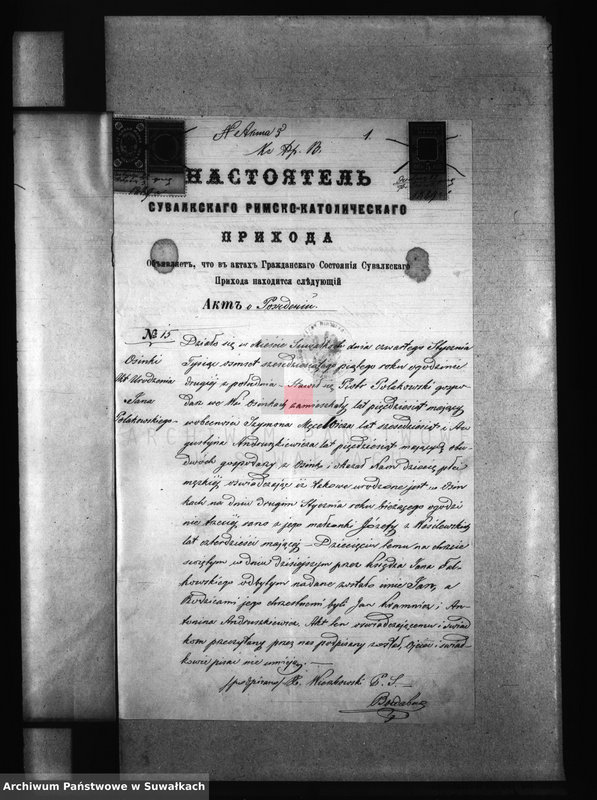 № Акта 3
1.
НАСТОЯТЕЛЬ
СУВАЛКСКАГО РИМСКО-КАТОЛИЧЕСКАГО
ПРИХОДА
Объявляетъ, что въ актахъ Гражданскаго Состоянія Сувалкскаго
Прихода находится слѣдующій
Актъ о Рожденіи
№ 15
Osinki
Akt Urodzenia
Jana
Polakowskiego
Działo się w mieście Suwałkach dnia czwartego Stycznia
Tysiąc osmset sześćdziesiątego piątego roku o godzinie
drugiej z południa. Stawił się Piotr Polakowski gospo
darz we wsi Osinkach zamieszkały lat pięćdziesiąt mający
w obecności Szymona lat sześćdziesiąt i Au
gustyna Andruszkiewicza lat pięćdziesiąt mających obu
dwóch gospodarzy z Osinki i okazał nam dziecię płci
męzkiej oświadczając iż takowe urodzone jest w Osin
kach na dniu drugim Stycznia roku bieżącego o godzi
nie trzeciej rano z jego małżonki Józefy z Wasilewskich
lat czterdzieści mającej. Dziecięciu temu na chrzcie
świętym w dniu dzisiejszym przez księdza Jana
kowskiego odbytym nadane zostało imie Jan, a
Rodzicami jego chrzestnemi byli Jan Kramnicz i An
tonina Andruszkiewicz. Akt ten oświadczającemu i świad
kom przeczytany przez nas podpisany został, Ojciec i świad
kowie pisać nie umieją.
/podpisano/ X. P. S.
Archiwum Państwowe w Suwałkach